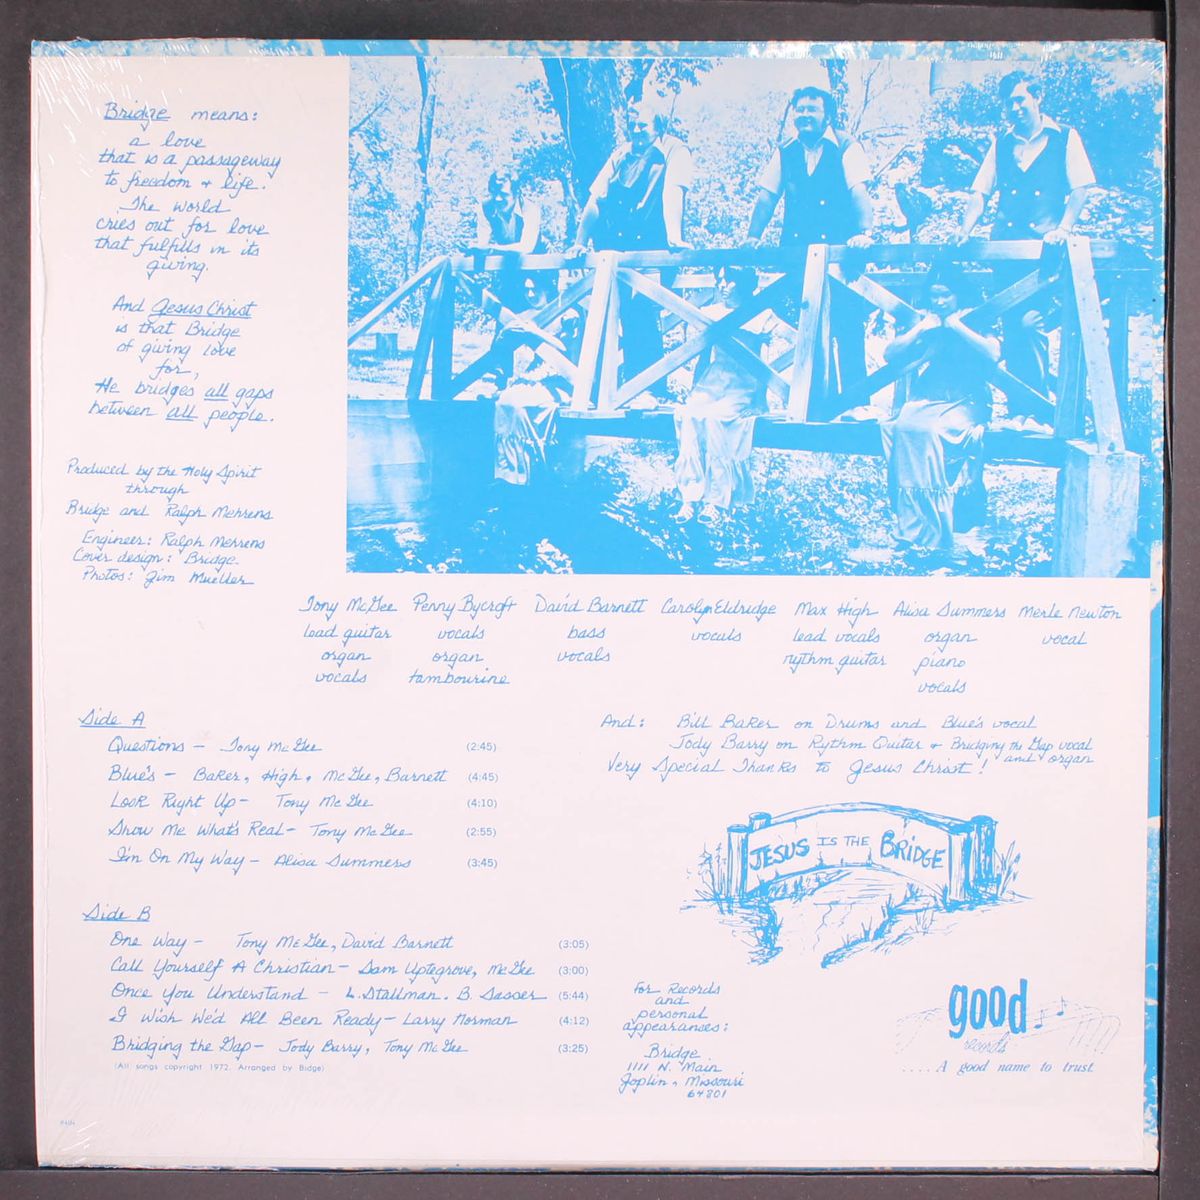 Bridge means:
a love
that is a passageway
to freedom + life.
The world
cries out for love
that fulfills in its
giving.
And Jesus Christ
is that Bridge
of giving love
for,
He bridges all gaps
between all people.
Produced by the Holy Spirit
through
Bridge and Ralph Mehrens
Engineer: Ralph Merrens
Cover design: Bridge.
Photos: Jim Mueller
Tony McGee Penny Bycroft David Barnett Carolyn Eldridge Max High Alisa Summers Merle Newton
lead guitar vocals bass vocals lead vocals organ vocal
organ organ vocals rythm guitar piano
vocals tambourine vocals
Side A
Questions — Tony McGee (2:45)
Blue's — Baker, High, McGee, Barnett (4:45)
Look Right Up — Tony McGee (4:10)
Show Me What's Real — Tony McGee (2:55)
I'm On My Way — Alisa Summers (3:45)
Side B
One Way — Tony McGee, David Barnett (3:05)
Call Yourself A Christian — Sam Uptegrove, McGee (3:00)
Once You Understand — L. Stallman. B. Sasser (5:44)
I Wish We'd All Been Ready — Larry Norman (4:12)
Bridging the Gap — Jody Barry, Tony McGee (3:25)
(All songs copyright 1972. Arranged by Bidge)
And: Bill Baker on Drums and Blue's vocal
Jody Barry on Rythm Guitar + Bridging the Gap vocal
and organ
Very Special Thanks to Jesus Christ!
JESUS IS THE BRIDGE
For Records
and
personal
appearanses:
Bridge
1111 N. Main
Joplin, Missouri
64801
good
records
....A good name to trust